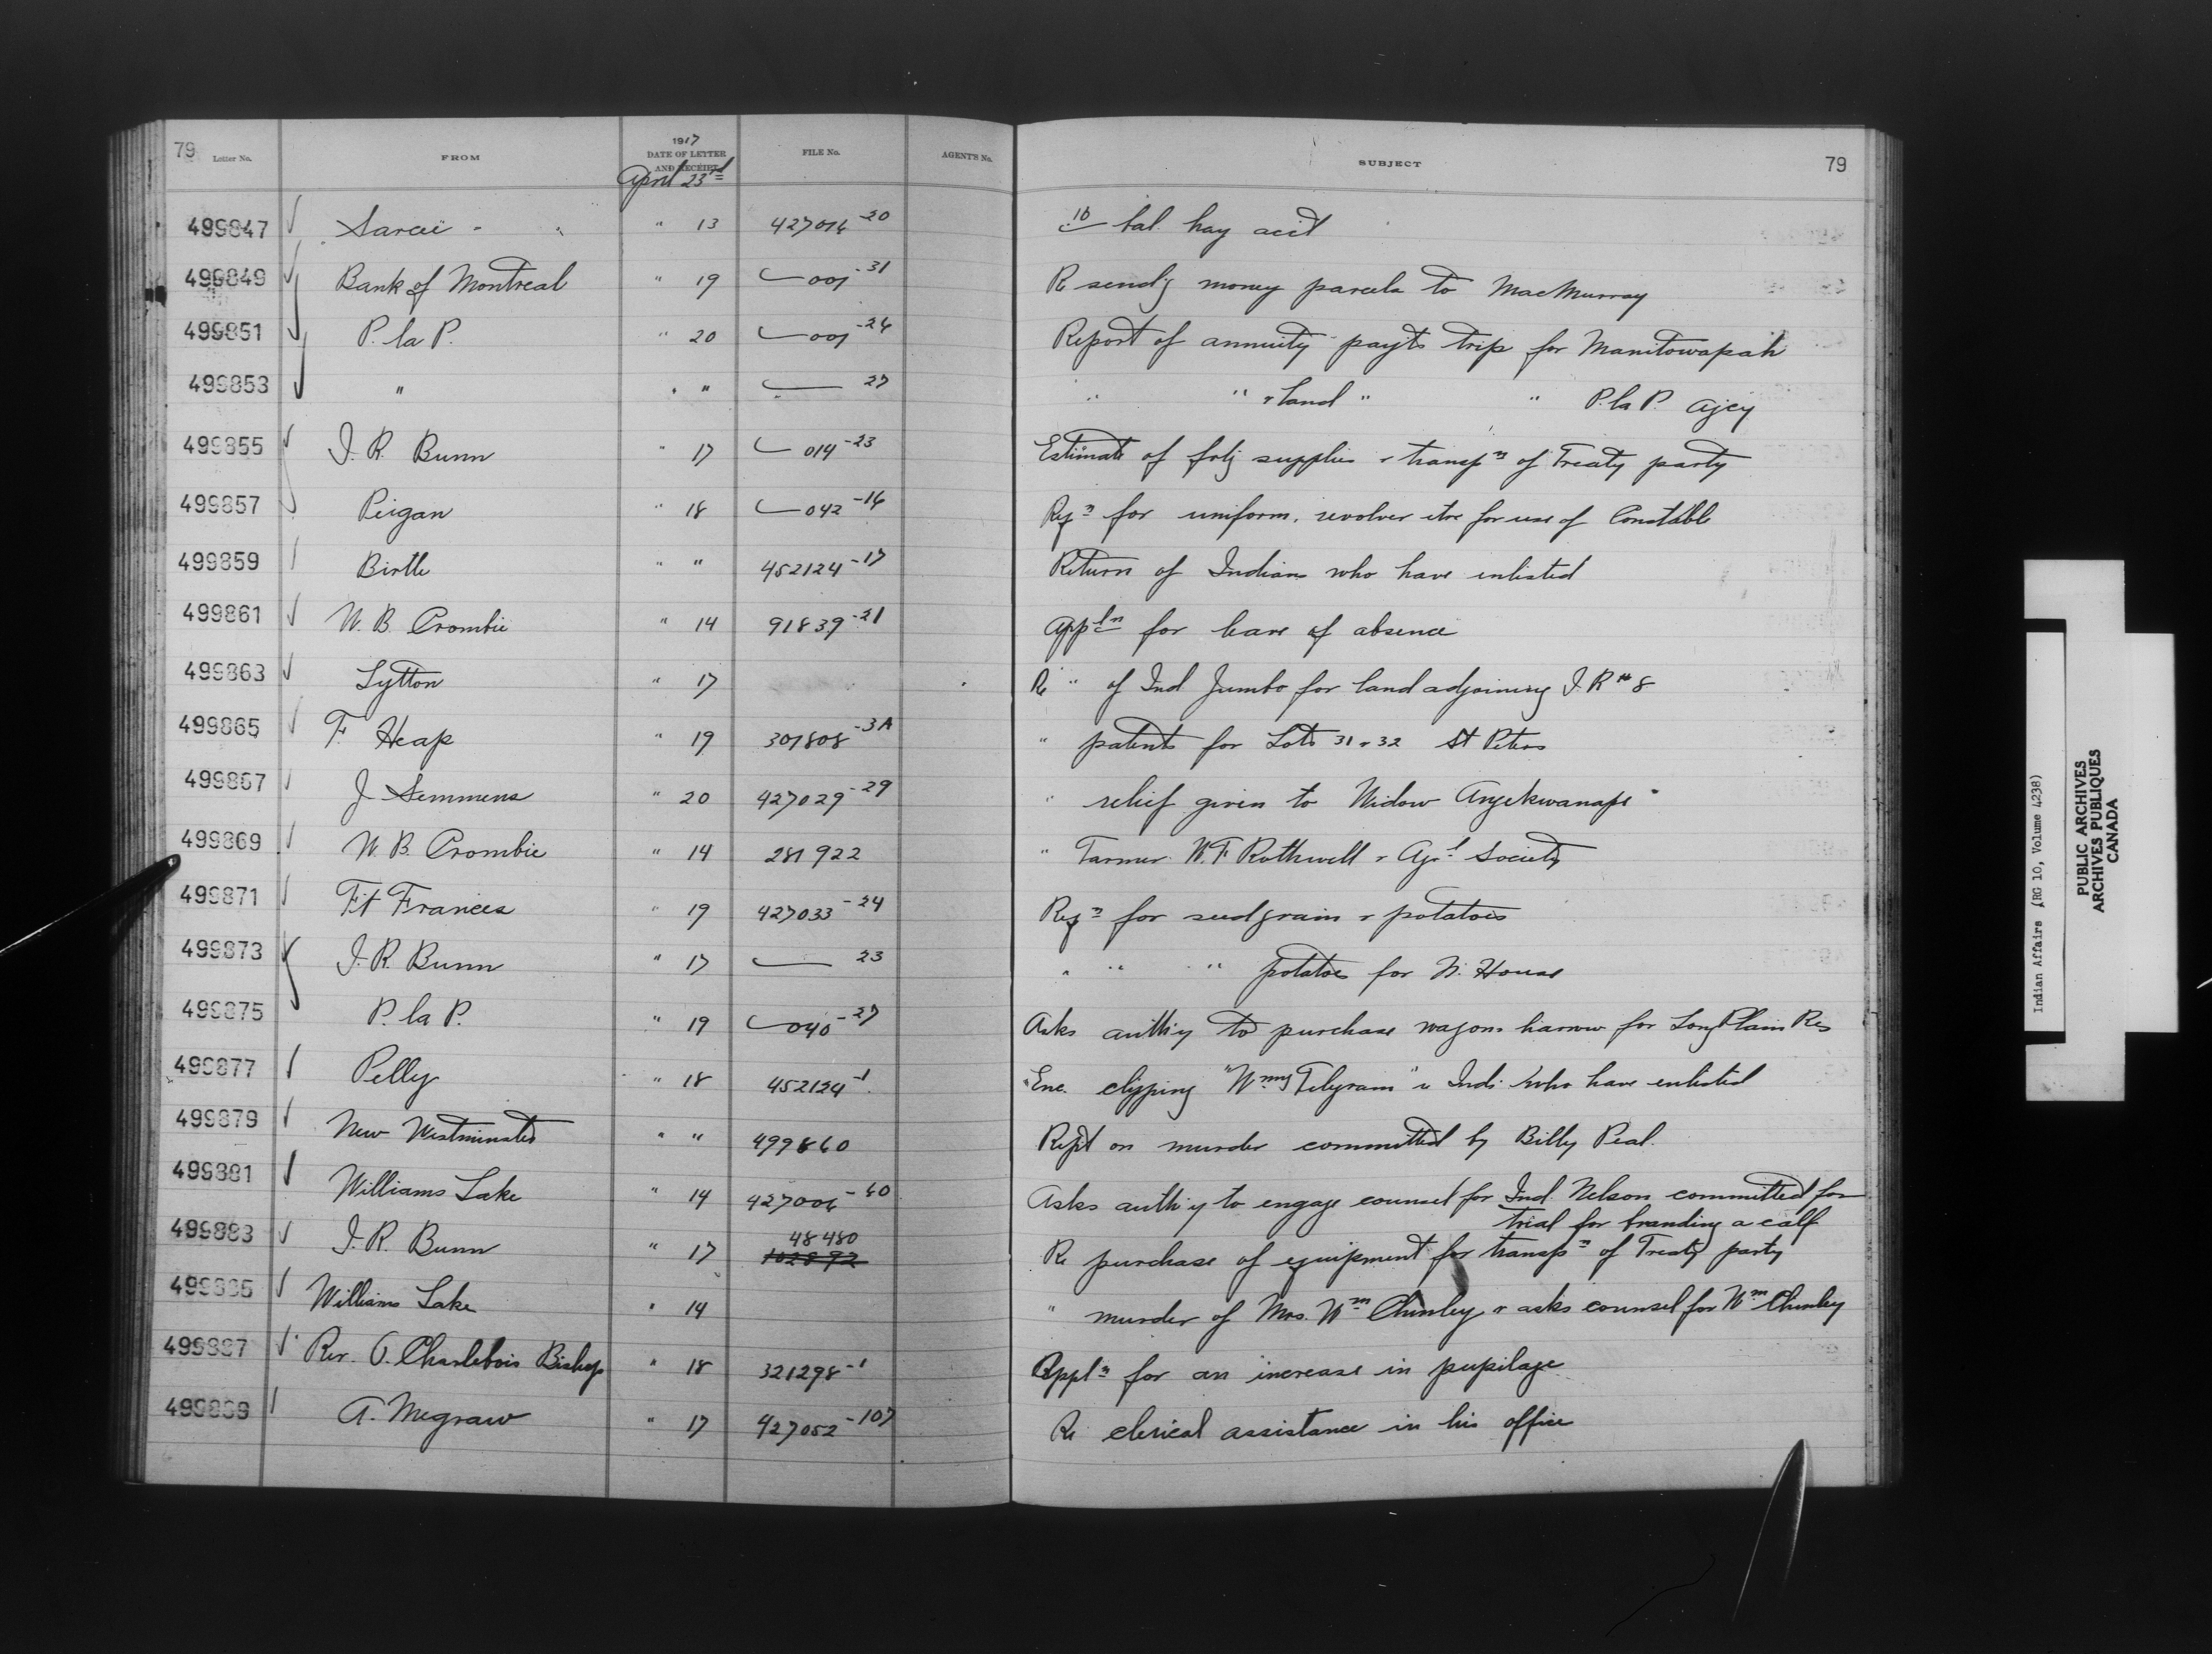 79 Letter No. FROM 1917 DATE OF LETTER AND RECEIPT FILE No. AGENT'S No. SUBJECT 79
April 23rd
499847 Sarcee " 13 427016-20 bal. hay acct
499849 Bank of Montreal " 19 001-31 Re send'g money parcels to MacMurray
499851 P. la P. " 20 001-26 Report of annuity payts trip for Manitowapah
499853 " " " 27 " " " land " " P. la P. Agcy
499855 J. R. Bunn " 17 014-23 Estimate of supplies & transpn of Treaty party
499857 Peigan " 18 042-16 Reqn for uniform, revolver etc for use of Constable
499859 Birtle " " 452124-17 Return of Indians who have enlisted
499861 W. B. Crombie " 14 91839-21 Appln for leave of absence
499863 Lytton " 17 Re " of Ind Jumbo for land adjoining I. R. # 8
499865 F. Heap " 19 307808-3A " patents for Lots 31 & 32 St Peters
499867 J. Semmens " 20 427029-29 " relief given to Widow
499869 W. B. Crombie " 14 281922 " Farmer W. F. Rothwell & Agrl Society
499871 Ft Frances " 19 427033-24 Reqn for seed grain & potatoes
499873 J. R. Bunn " 17 23 " " " potatoes for N. House
499875 P. la P. " 19 040-27 Asks auth'y to purchase wagons harrow for Long Plain Res
499877 Pelly " 18 452124-1 Enc. clipping "Wnny Telegram" re Inds who have enlisted
499879 New Westminster " " 499860 Rept on murder committed by Billy Peal.
499881 Williams Lake " 14 427006-60 Asks auth'y to engage counsel for Ind. Nelson committed for
trial for branding a calf
499883 J. R. Bunn " 17 48480 102892 Re purchase of equipment for transpn of Treaty party
499885 Williams Lake " 14 " murder of Mrs. Wm Chinley & asks counsel for Wm Chinley
499887 Rev. O. Charlebois Bishop " 18 321298-1 Appln for an increase in pupilage
499889 A. Megraw " 17 427052-107 Re clerical assistance in his office
Indian Affairs (RG 10, Volume 4238)
PUBLIC ARCHIVES
ARCHIVES PUBLIQUES
CANADA